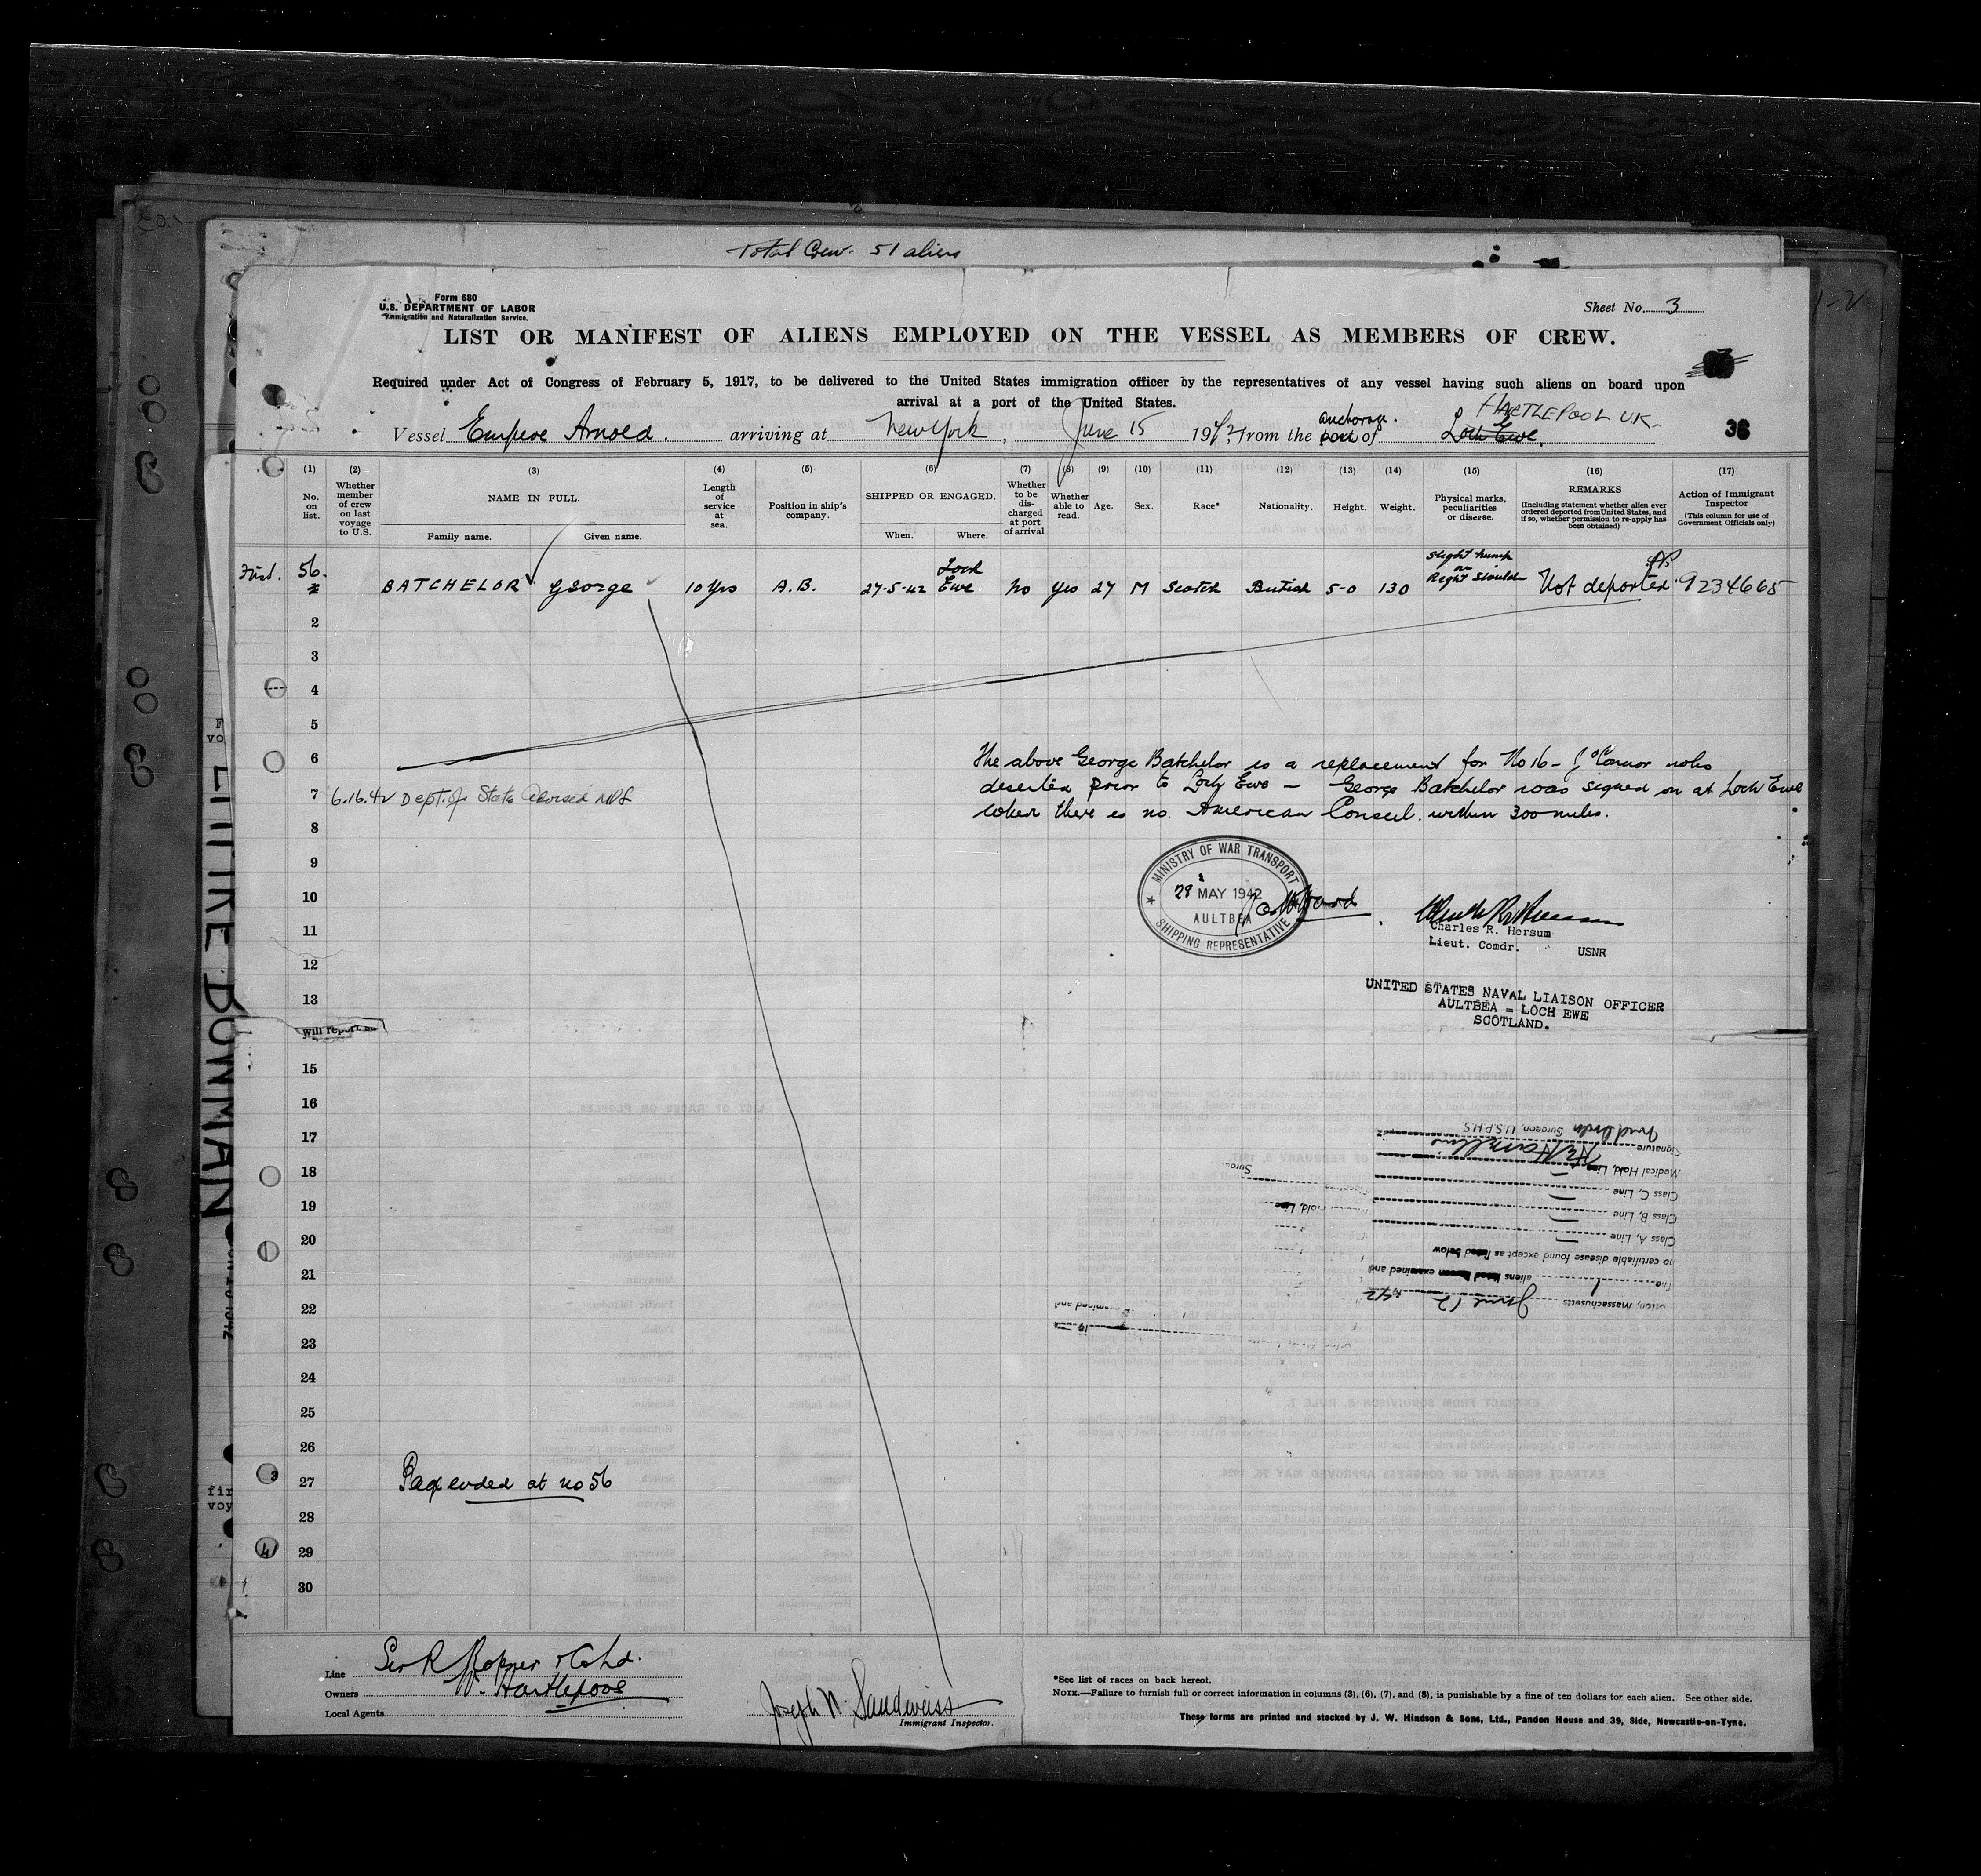 Total Crew. 51 aliens
Form 680
U.S. DEPARTMENT OF LABOR
Immigration and Naturalization Service.
Sheet No. 3
LIST OR MANIFEST OF ALIENS EMPLOYED ON THE VESSEL AS MEMBERS OF CREW.
Required under Act of Congress of February 5, 1917, to be delivered to the United States immigration officer by the representatives of any vessel having such aliens on board upon
arrival at a port of the United States.
HARTLEPOOL UK
Vessel Empire Arnold. arriving at New York, June 15 1942, from the anchorage port of Loch Ewe.
36
(1) (2) (3) (4) (5) (6) (7) (8) (9) (10) (11) (12) (13) (14) (15) (16) (17)
No. on list.
Whether member of crew on last voyage to U.S.
NAME IN FULL.
Family name. Given name.
Length of service at sea.
Position in ship's company.
SHIPPED OR ENGAGED.
When. Where.
Whether to be discharged at port of arrival
Whether able to read.
Age.
Sex.
Race*
Nationality.
Height.
Weight.
Physical marks, peculiarities or disease.
REMARKS
(Including statement whether alien ever ordered deported from United States, and if so, whether permission to re-apply has been obtained)
Action of Immigrant Inspector
(This column for use of Government Officials only)
First. 56. BATCHELOR George 10 Yrs A.B. 27-5-42 Loch Ewe No Yes 27 M Scotch British 5-0 130 Slight hump on Right Shoulder Not deported 9234665
2
3
4
5
6
The above George Batchelor is a replacement for No 16 - J O'Connor who
7 6.16.42 Dept. of State Advised
deserted prior to Loch Ewe - George Batchelor was signed on at Loch Ewe
8
where there is no American Consul within 300 miles.
9
MINISTRY OF WAR TRANSPORT
28 MAY 1942
AULTBEA
SHIPPING REPRESENTATIVE
10
11
Charles R. Hersum
Lieut. Comdr. USNR
12
13
UNITED STATES NAVAL LIAISON OFFICER
AULTBEA - LOCH EWE
SCOTLAND.
will report
15
16
17
18
19
20
21
22
23
24
25
26
27
28
29
30
Surgeon, U.S.P.H.S
Signature
Medical Hold, Line
Class C, Line
Class B, Line
Class A, Line
no certifiable disease found except as listed below
aliens listed hereon examined and
Massachusetts June 12 1942
Page ended at no 56
Line Sir R Ropner & Co Ltd.
Owners W. Hartlepool
Local Agents
Joseph N. Sandweiss
Immigrant Inspector.
*See list of races on back hereof.
NOTE.—Failure to furnish full or correct information in columns (3), (6), (7), and (8), is punishable by a fine of ten dollars for each alien. See other side.
These forms are printed and stocked by J. W. Hindson & Sons, Ltd., Pandon House and 39, Side, Newcastle-on-Tyne.